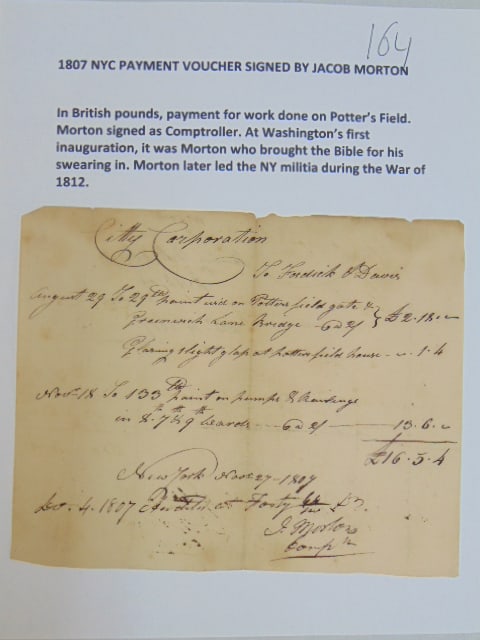 164
1807 NYC PAYMENT VOUCHER SIGNED BY JACOB MORTON
In British pounds, payment for work done on Potter's Field.
Morton signed as Comptroller. At Washington's first
inauguration, it was Morton who brought the Bible for his
swearing in. Morton later led the NY militia during the War of
1812.
Citty Corporation
To & Davis
August 29 To 29 lb paint on Potters field gate &
Greenwich Lane Bridge £2.18.
light glass at potters field house 1.4
Nov. 18 To 133 lb paint on pumps &
in 8th 7th & 9th Wards 13.6.
£16.5.4
New York Nov. 27 - 1807
4. 1807 Forty
J. Morton
Compr